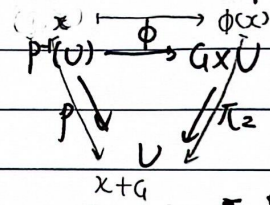 x ↦ ϕ(x)
p⁻¹(U) →ϕ G×U
p π₂
U
x+G